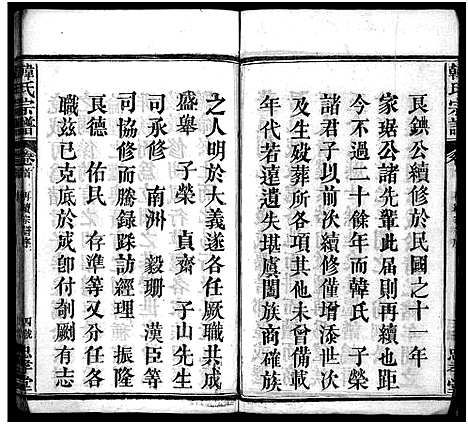 韓氏宗譜
艮鉷公續修於民國之十一年
家琚公諸先輩此屆則再續也距
今不過二十餘年而韓氏 子榮
諸君子以前次續修僅增添世次
及生歿葬所其他未曾備載一切
年代若遠遺失堪虞闔族商確族
之人明於大義遂各任厥職共成
盛舉 子榮 貞齋 子山先生
可承修 南洲 毅珊 漢臣等
可協修而謄錄踩訪經理 振隆
艮德 佑民 存準等又分任各
職兹已克底於成卽付剞劂有志
韓氏宗譜
卷首
四號